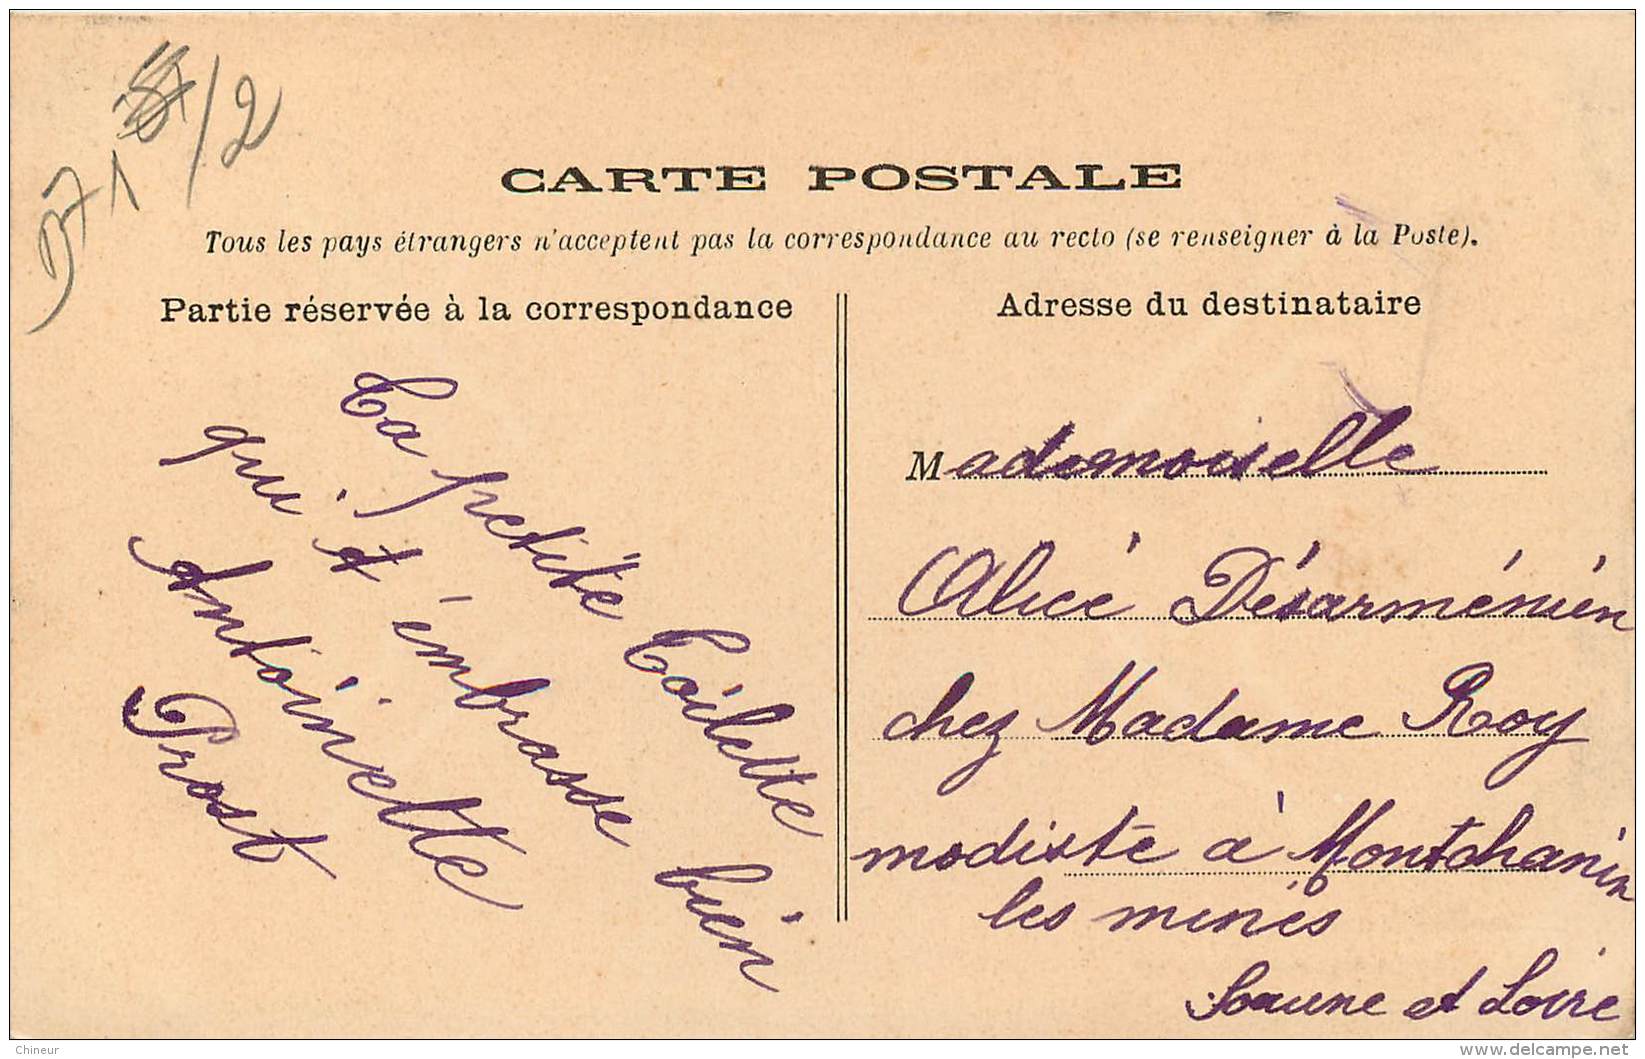 D71 /2
CARTE POSTALE
Tous les pays étrangers n'acceptent pas la correspondance au recto (se renseigner à la Poste).
Partie réservée à la correspondance
Ta petite Coilette
qui t'embrasse bien
Antoinette
Prost
Adresse du destinataire
Mademoiselle
Alice Désarménien
chez Madame Roy
modiste à Montchanin
les mines
Saune et Loire
Chineur
delcampe.net